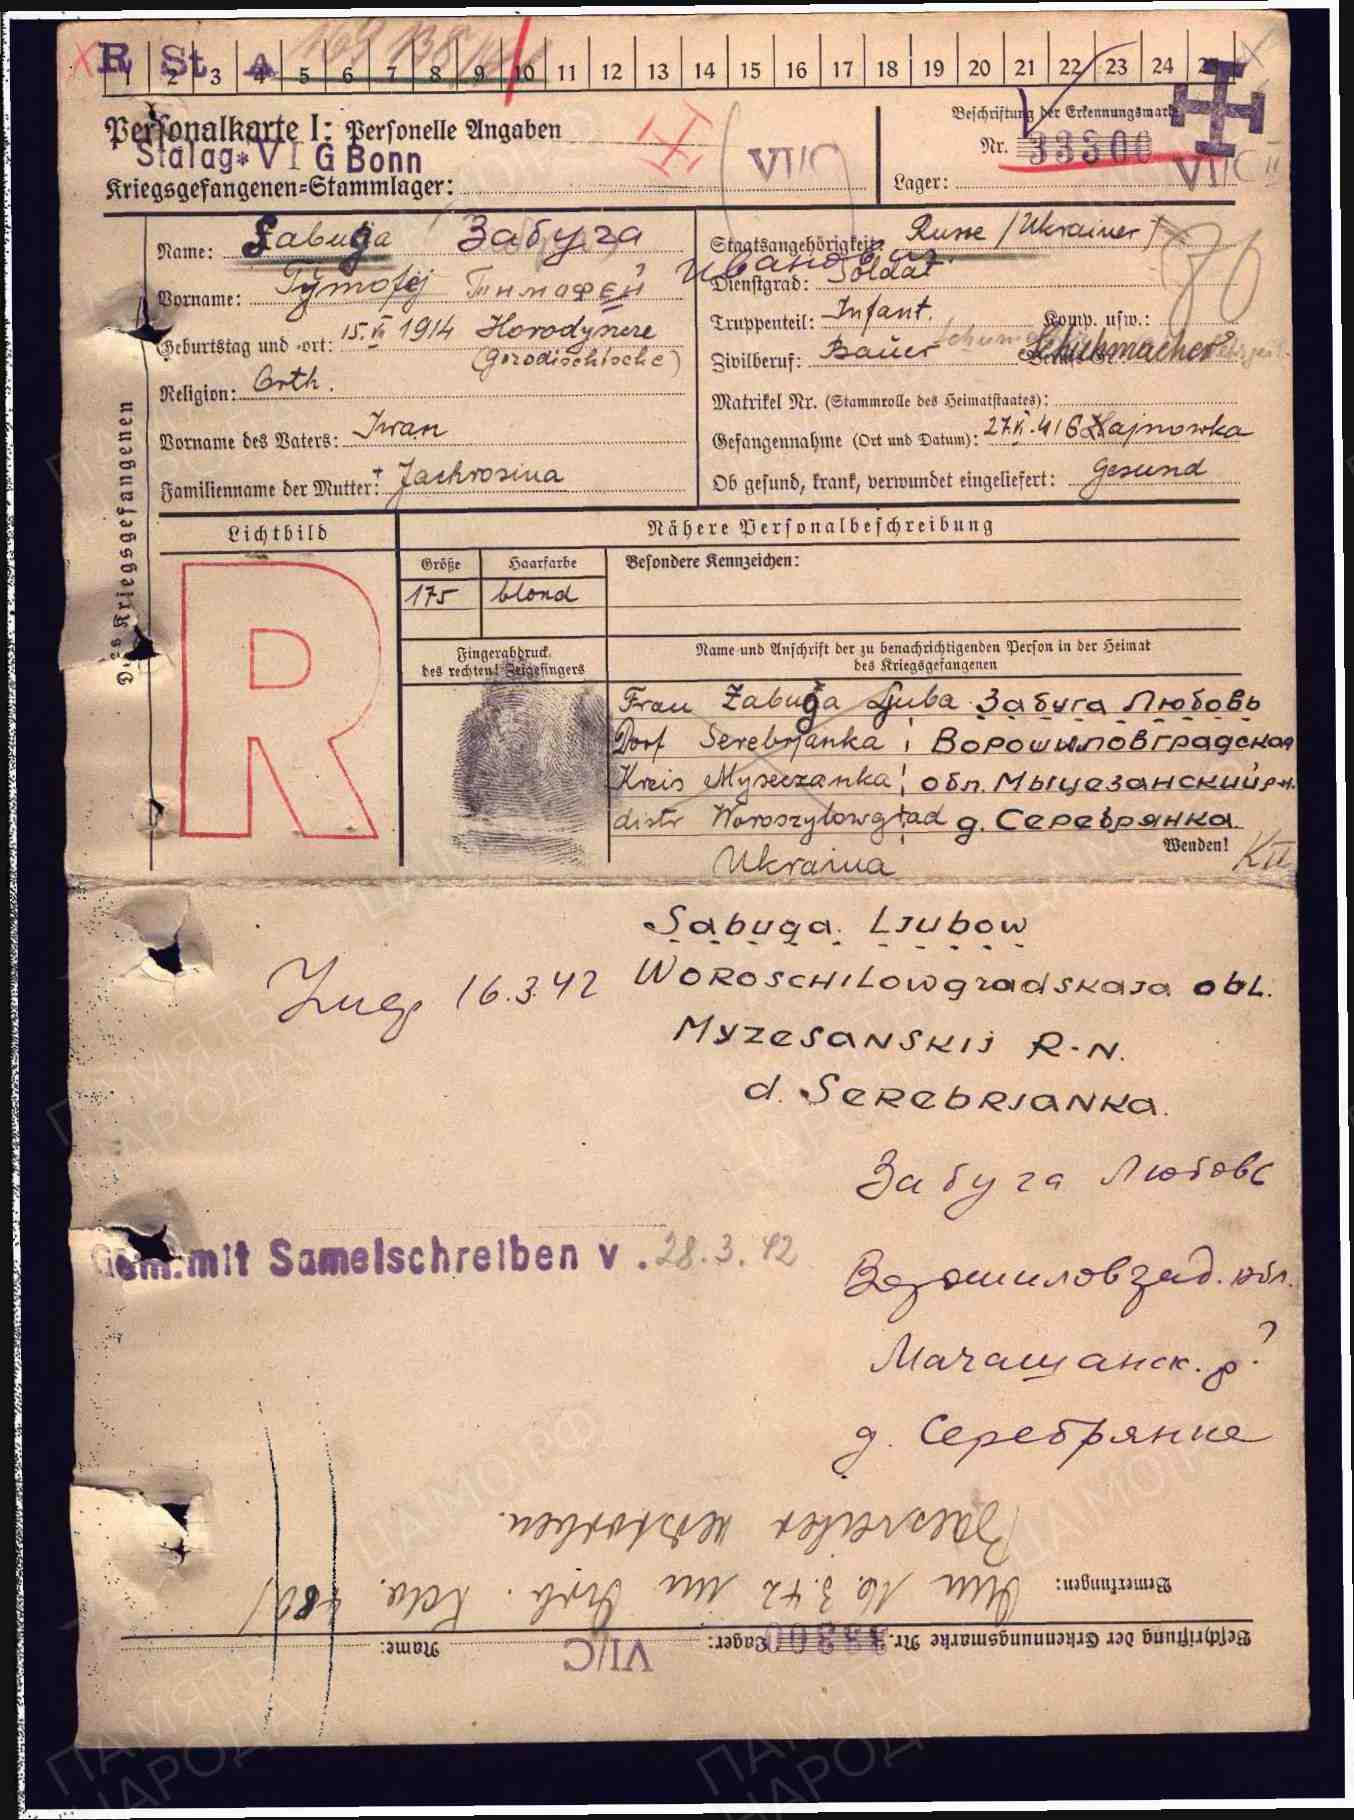 R St. A
1 2 3 4 5 6 7 8 9 10 11 12 13 14 15 16 17 18 19 20 21 22 23 24 25
Personalkarte I: Personelle Angaben
Beschriftung der Erkennungsmarke
Stalag VI G Bonn
VI/C
Nr. 33300
Kriegsgefangenen=Stammlager:
Lager: VI/C II
Name: Sabuga Забуга
Staatsangehörigkeit: Russe / Ukrainer /
Vorname: Tymofej Тимофей Иванович
Dienstgrad: Soldat
Geburtstag und -ort: 15.VI 1914 Horodyszcze
(Gorodischtsche)
Truppenteil: Infant. Komp. usw.:
Zivilberuf: Bauer Schuhmacher
Religion: Orth.
Matrikel Nr. (Stammrolle des Heimatstaates):
Vorname des Vaters: Iwan
Gefangennahme (Ort und Datum): 27.VI.41 Hajnowka
Familienname der Mutter: Jachrosina
Ob gesund, krank, verwundet eingeliefert: Gesund
Des Kriegsgefangenen
Lichtbild
Nähere Personalbeschreibung
Größe Haarfarbe Besondere Kennzeichen:
175 blond
R
Fingerabdruck
des rechten! Zeigefingers
Name und Anschrift der zu benachrichtigenden Person in der Heimat
des Kriegsgefangenen
Frau Zabuga Ljuba Забуга Любовь
Dorf Serebrjanka Ворошиловградская
Kreis Myseczanka обл. Мыцезанский р-н.
distr Woroszylowgrad д. Серебрянка
Wenden!
Ukraina
Sabuga. Ljubow
16.3.42 Woroschilowgradskaja obl.
Myzesanskij R-N.
d. Serebrjanka.
Забуга Любовь
Gem. mit Samelschreiben v. 28.3.42
Ворошиловград. обл.
Мачашанск. р?
д. Серебрянке
Bemerkungen: Am 16.3.42 im
verstorben.
Beschriftung der Erkennungsmarke Nr. 33300 Lager: VI/C Name: